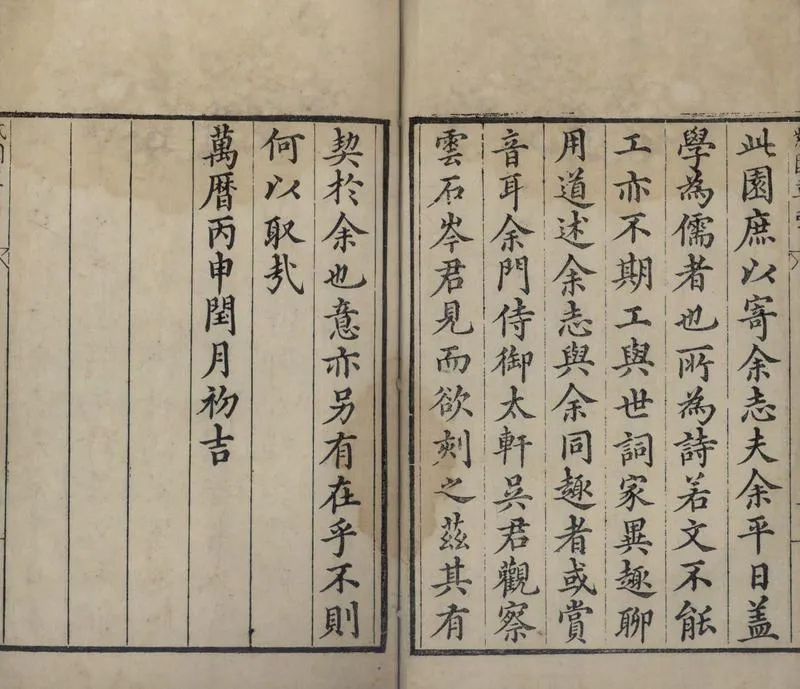 此園庶以寄余志夫余平日盖
學為儒者也所為詩若文不能
工亦不期工與世詞家異趣聊
用道述余志與余同趣者或賞
音耳余門侍御太軒吳君觀察
雲石岑君見而欲刻之茲其有
契於余也意亦另有在乎不則
何以取哉
萬曆丙申閏月初吉